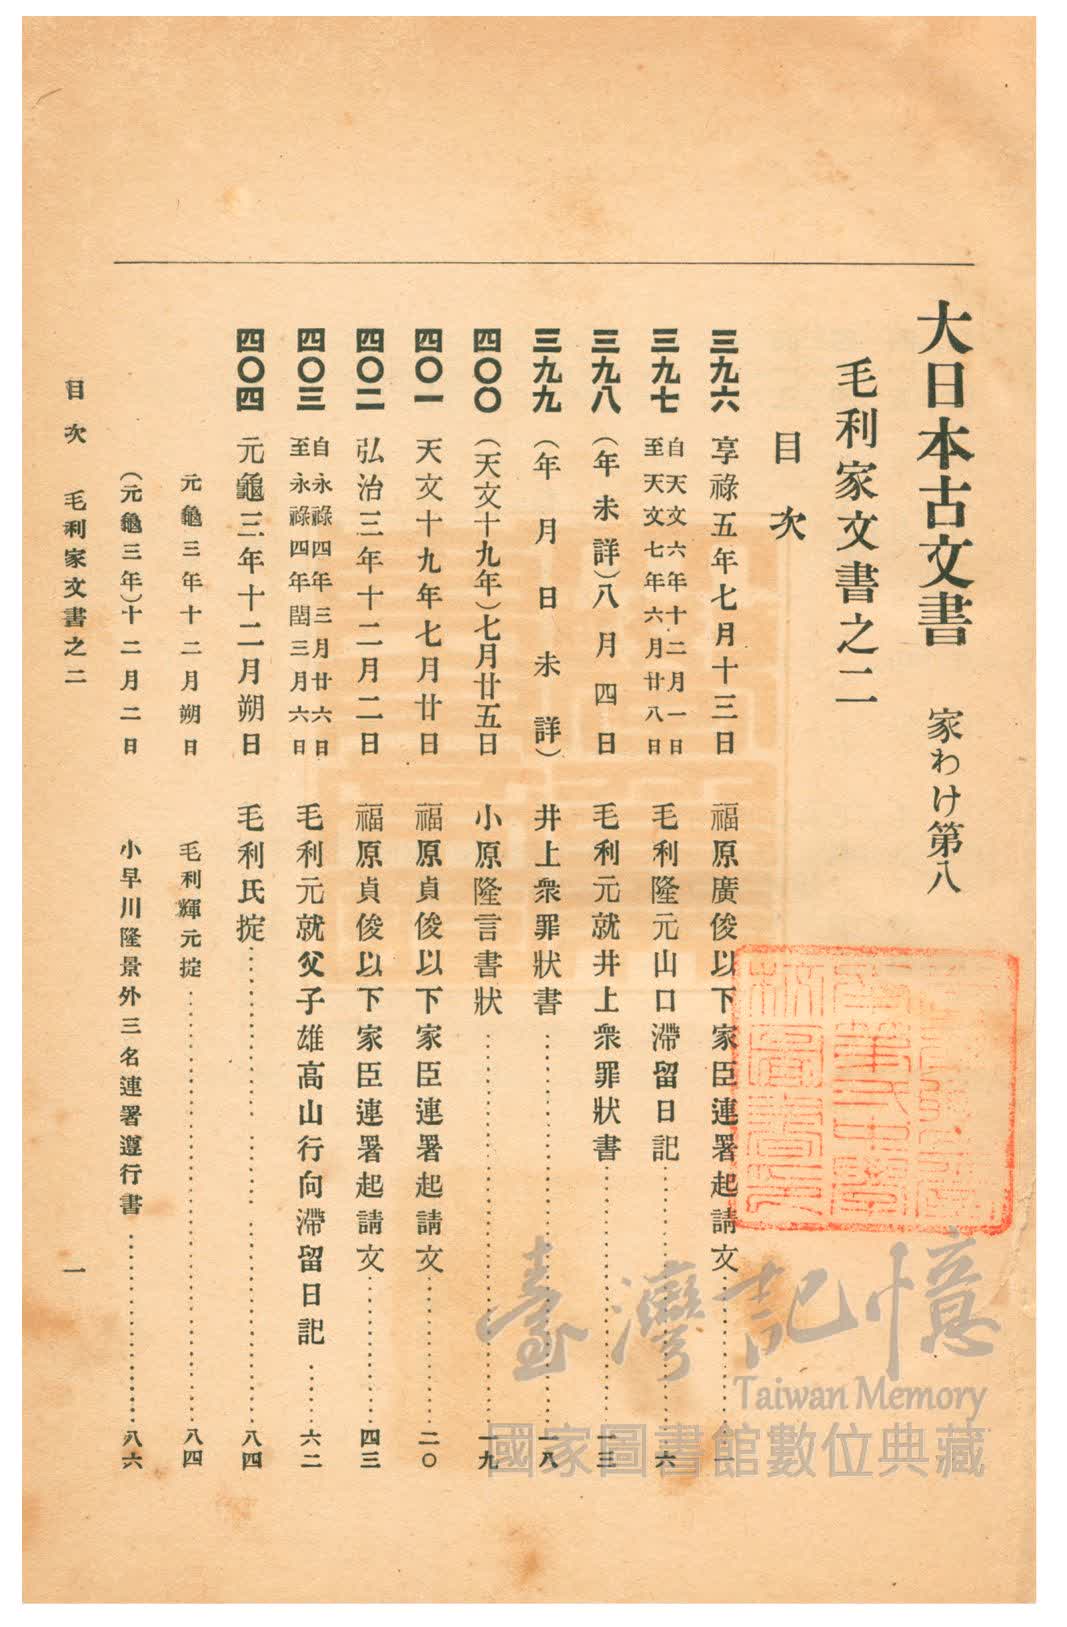 大日本古文書 家わけ第八
毛利家文書之二
目次
三九六 享祿五年七月十三日 福原廣俊以下家臣連署起請文 一
三九七 自天文六年十二月一日 至天文七年六月廿八日 毛利隆元山口滯留日記 六
三九八 (年未詳)八月四日 毛利元就井上衆罪狀書 一三
三九九 (年月日未詳) 井上衆罪狀書 一八
四〇〇 (天文十九年)七月廿五日 小原隆言書狀 一九
四〇一 天文十九年七月廿日 福原貞俊以下家臣連署起請文 二〇
四〇二 弘治三年十二月二日 福原貞俊以下家臣連署起請文 四三
四〇三 自永祿四年三月廿六日 至永祿四年閏三月六日 毛利元就父子雄高山行向滯留日記 六二
四〇四 元龜三年十二月朔日 毛利氏掟 八四
元龜三年十二月朔日 毛利輝元掟 八四
(元龜三年)十二月二日 小早川隆景外三名連署遵行書 八六
目次 毛利家文書之二 一
臺灣記憶
Taiwan Memory
國家圖書館數位典藏